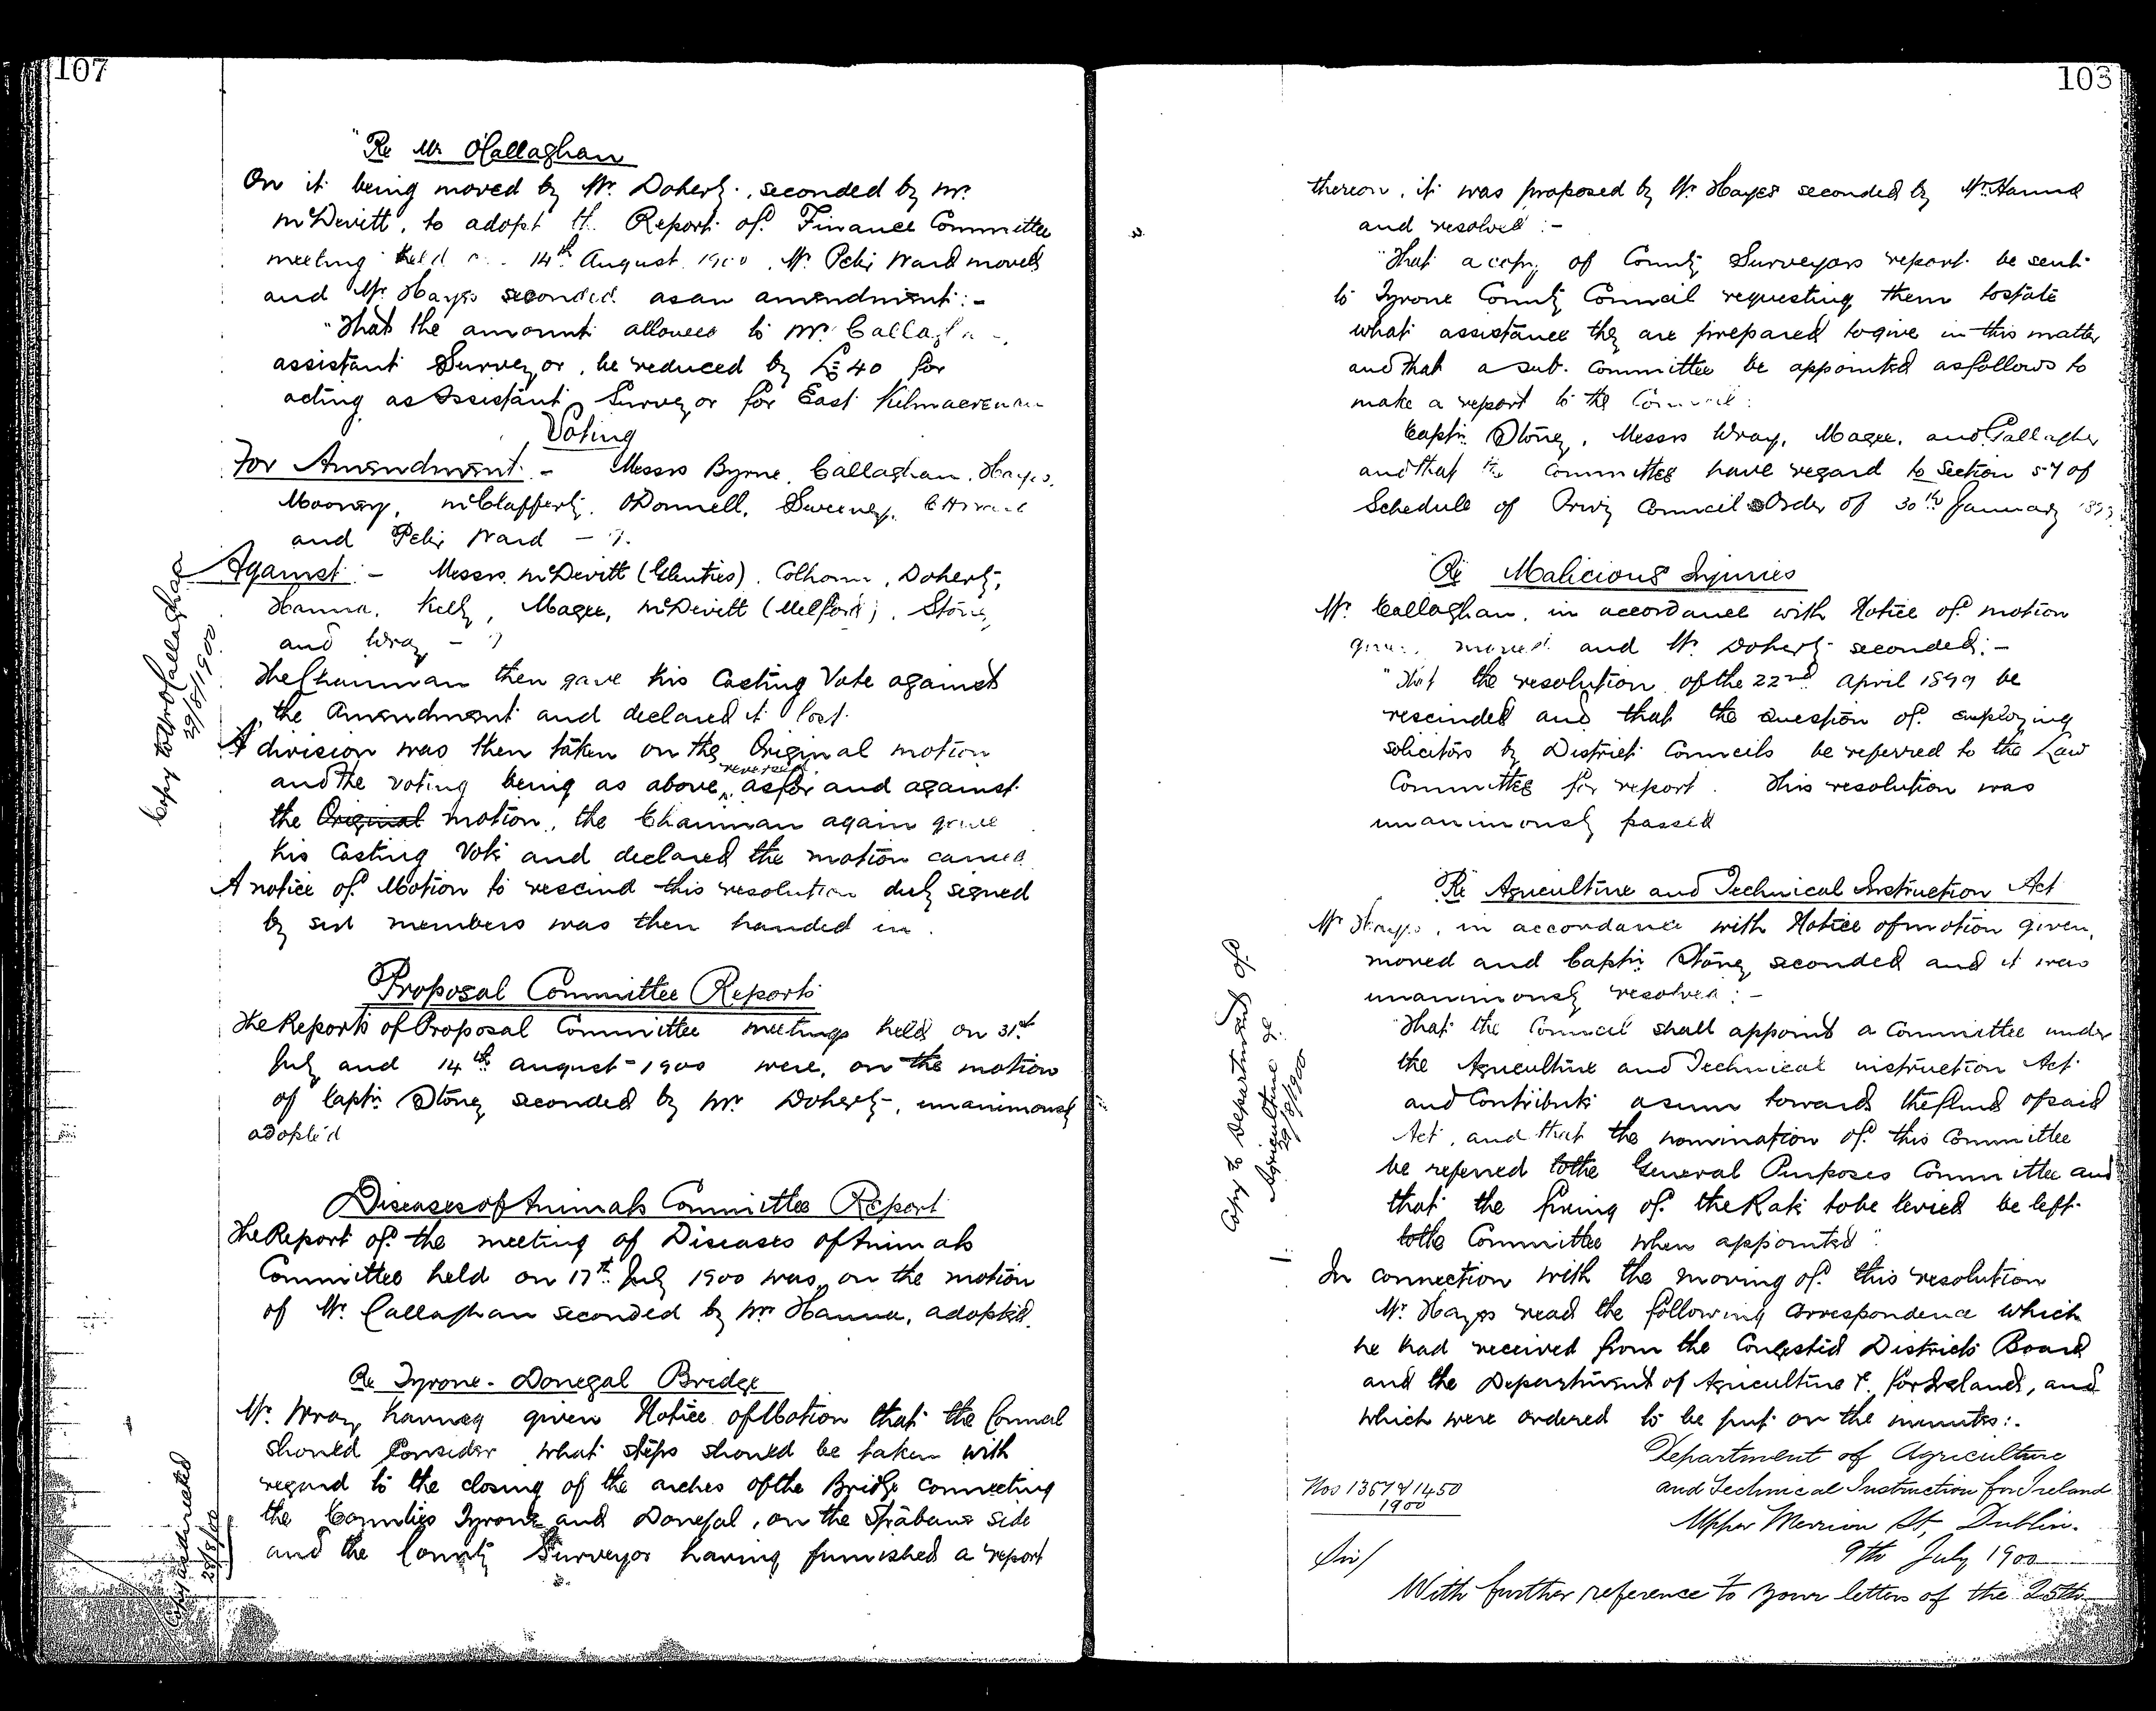 107
"Re Mr O'Callaghan
On it being moved by Mr. Doherty, seconded by Mr.
McDevitt, to adopt the Report of Finance Committee
meeting held 14th August 1900, Mr. Peter Ward moved
and Mr. Hayes seconded as an amendment:-
"That the amount allowed to Mr. Callagha
assistant Surveyor, be reduced by £40 for
acting as Assistant Surveyor for East Kilmacrenan
Voting
For Amendment:- Messrs Byrne, Callaghan, Hayes,
Mooney, McClafferty, O'Donnell, Sweeney,
and Peter Ward - 9.
Against:- Messrs. McDevitt (Glenties), Colhoun, Doherty,
Hanna, Kelly, Magee, McDevitt (Milford), Stoney
and Wray - 9
The Chairman then gave his Casting Vote against
the Amendment and declared it lost.
A division was then taken on the Original motion
and the voting being as above reversed, as for and against
the Original motion, the Chairman again gave
his Casting Vote and declared the motion carried
A notice of Motion to rescind this resolution duly signed
by six members was then handed in.
Copy to Mr O'Callaghan
29/8/1900
Proposal Committee Reports
The Reports of Proposal Committee meetings held on 31st
July and 14th August 1900 were, on the motion
of Captn. Stoney seconded by Mr. Doherty, unanimously
adopted
Diseases of Animals Committee Report
The Report of the meeting of Diseases of Animals
Committee held on 17th July 1900 was, on the motion
of Mr. Callaghan seconded by Mr Hanna, adopted.
Re Tyrone - Donegal Bridge
Mr. Wray having given Notice of Motion that the Council
should consider what steps should be taken with
regard to the closing of the arches of the Bridge connecting
the Counties Tyrone and Donegal, on the Strabane side
and the County Surveyor having furnished a report
Copy as directed
28/8/00
103
thereon, it was proposed by Mr. Hayes seconded by Mr. Hanna
and resolved:-
"That a copy of County Surveyors report be sent
to Tyrone County Council requesting them to state
what assistance they are prepared to give in this matter
and that a sub. committee be appointed as follows to
make a report to the Council:
Captn. Stoney, Messrs Wray, Magee, and Gallagher
and that the Committee have regard to Section 57 of
Schedule of Privy Council Order of 30th January
Re Malicious Injuries
Mr. Callaghan, in accordance with Notice of motion
given, moved and Mr. Doherty seconded:-
"That the resolution of the 22nd April 1899 be
rescinded and that the question of employing
solicitors by District Councils be referred to the Law
Committee for report. This resolution was
unanimously passed
Re Agriculture and Technical Instruction Act
Mr Hayes, in accordance with Notice of motion given,
moved and Captn. Stoney seconded and it was
unanimously resolved:-
"That the Council shall appoint a Committee under
the Agriculture and Technical instruction Act
and Contribute a sum towards the fund of said
Act, and that the nomination of this Committee
be referred to the General Purposes Committee and
that the fixing of the Rate to be levied be left
to the Committee when appointed".
Copy to Department of
Agriculture &c
29/8/1900
In connection with the moving of this resolution
Mr. Hayes read the following correspondence which
he had received from the Congested Districts Board
and the Department of Agriculture &c. for Ireland, and
which were ordered to be put on the minutes:-
Department of Agriculture
and Technical Instruction for Ireland
Nos 1367 & 1450
1900
Upper Merrion St, Dublin.
9th July 1900
Sir/
With further reference to your letters of the 25th